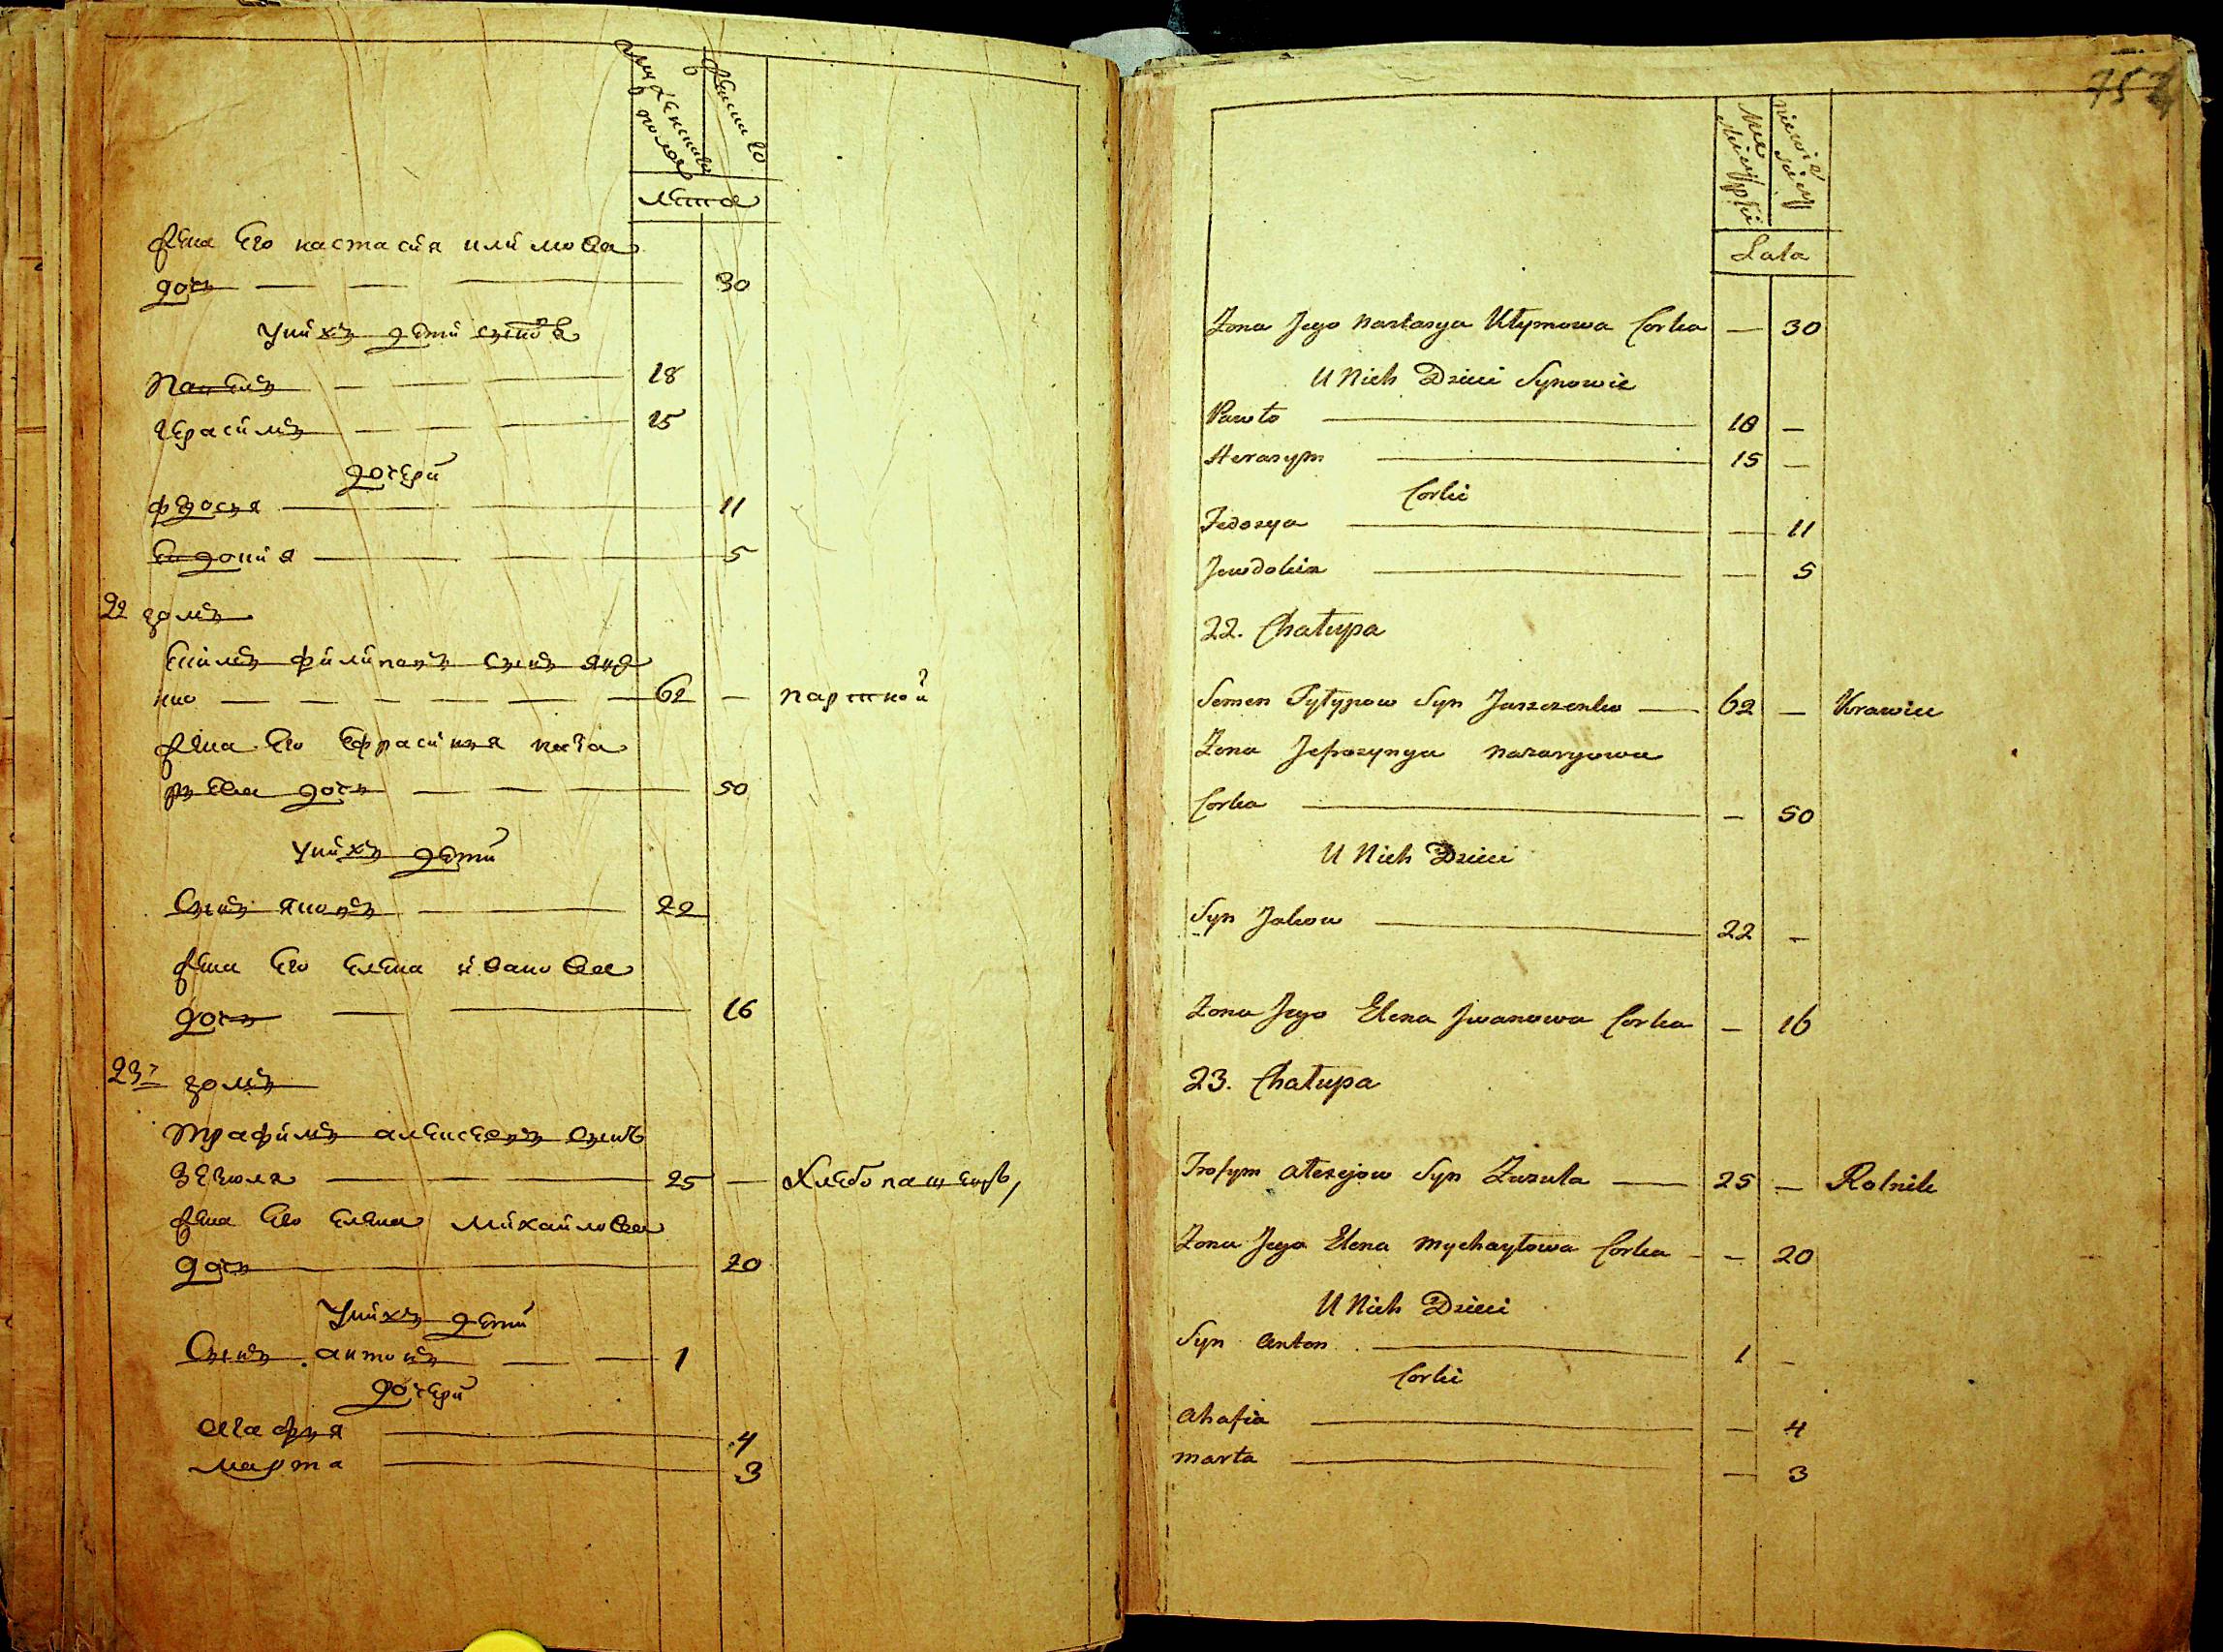 лета
жена его настасия климова
дочь 30
У нихъ дети сыновя
Павелъ 18
Герасимъ 15
дочери
федосья 11
Евдокия 5
22 домъ
Семенъ филиповъ сынъ яще
нко 62 — портной
жена его Ефрасинья наза
рьева дочь 50
У нихъ дети
Сынъ яковъ 22
жена его елена иванова
дочь 16
23 домъ
трафимъ алексеевъ сынъ
Зезюля 25 — Хлебопашецъ
жена его елена михайлова
дочь 20
У нихъ дети
Сынъ антонъ 1
дочери
агафья 4
марта 3
752
Męskiey płci
niewieściey
Lata
Zona Jego Nastasya Kłymowa Corka — 30
U Nich Dzieci Synowie
Pawło 18 —
Herasym 15 —
Corki
Fedosya — 11
Jewdokia — 5
22. Chałupa
Semen Pyłypow Syn Jaszczenko 62 — Krawiec
Zona Jefrosynya Nazaryowa
Corka — 50
U Nich Dzieci
Syn Jakow 22 —
Zona Jego Elena Jwanowa Corka — 16
23. Chałupa
Trofym Alexejow Syn Zazula 25 — Rolnik
Zona Jego Elena Mychayłowa Corka — 20
U Nich Dzieci
Syn Anton 1 —
Corki
Ahafia — 4
Marta — 3